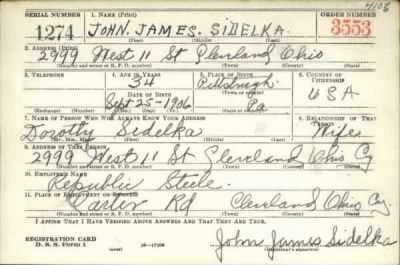 4106
SERIAL NUMBER 1. NAME (Print) ORDER NUMBER
1274 JOHN. JAMES. SIDELKA. 3553
(First) (Middle) (Last)
2. ADDRESS (Print)
2999 West 11 St Cleveland Ohio
(Number and street or R. F. D. number) (Town) (County) (State)
3. TELEPHONE 4. AGE IN YEARS 5. PLACE OF BIRTH 6. COUNTRY OF CITIZENSHIP
34 Pittsburgh
DATE OF BIRTH (Town or county) U S A
Sept 25-1906 Pa
(Exchange) (Number) (Mo.) (Day) (Yr.) (State or country)
7. NAME OF PERSON WHO WILL ALWAYS KNOW YOUR ADDRESS 8. RELATIONSHIP OF THAT PERSON
Dorothy Sidelka Wife
(Mr., Mrs., Miss) (First) (Middle) (Last)
9. ADDRESS OF THAT PERSON
2999 West 11 St Cleveland Ohio Cy
(Number and street or R. F. D. number) (Town) (County) (State)
10. EMPLOYER'S NAME
Republic Steele.
11. PLACE OF EMPLOYMENT OR BUSINESS
Carter Rd Cleveland Ohio Cy.
(Number and street or R. F. D. number) (Town) (County) (State)
I AFFIRM THAT I HAVE VERIFIED ABOVE ANSWERS AND THAT THEY ARE TRUE.
REGISTRATION CARD
D. S. S. FORM 1 16-17105 John James Sidelka
(Registrant's signature)